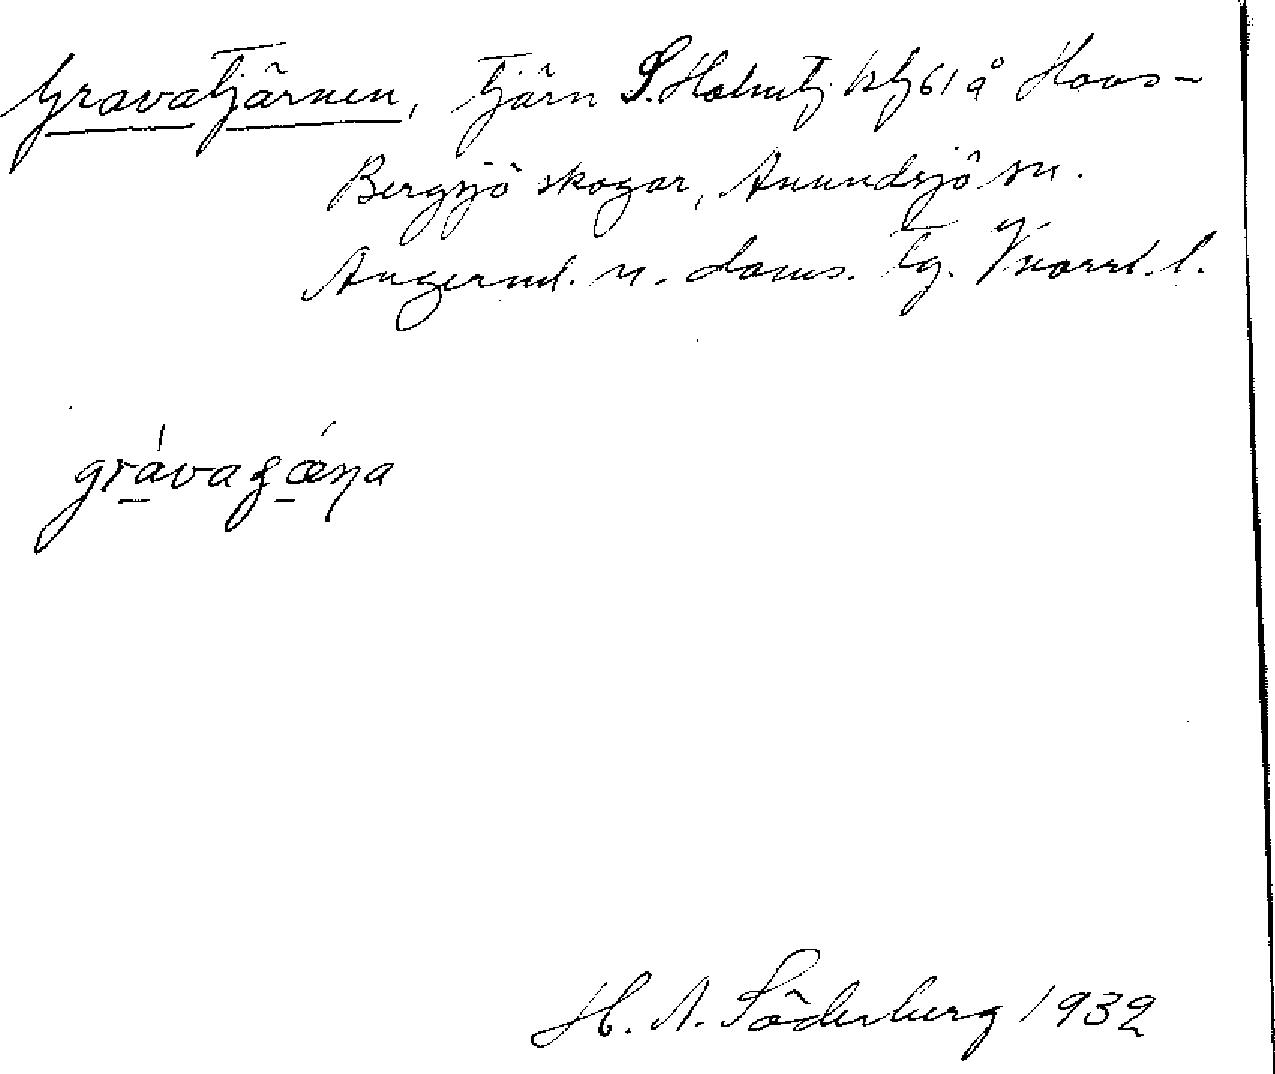 Gravatjärnen, tjärn S. Holmtj. blg 61 å Hoos-
Bergsjö skogar, Anundsjö sn.
Ångerml. n. doms. Tg. Vnorrl. l.
grávagǽna
H. A. Söderberg 1932